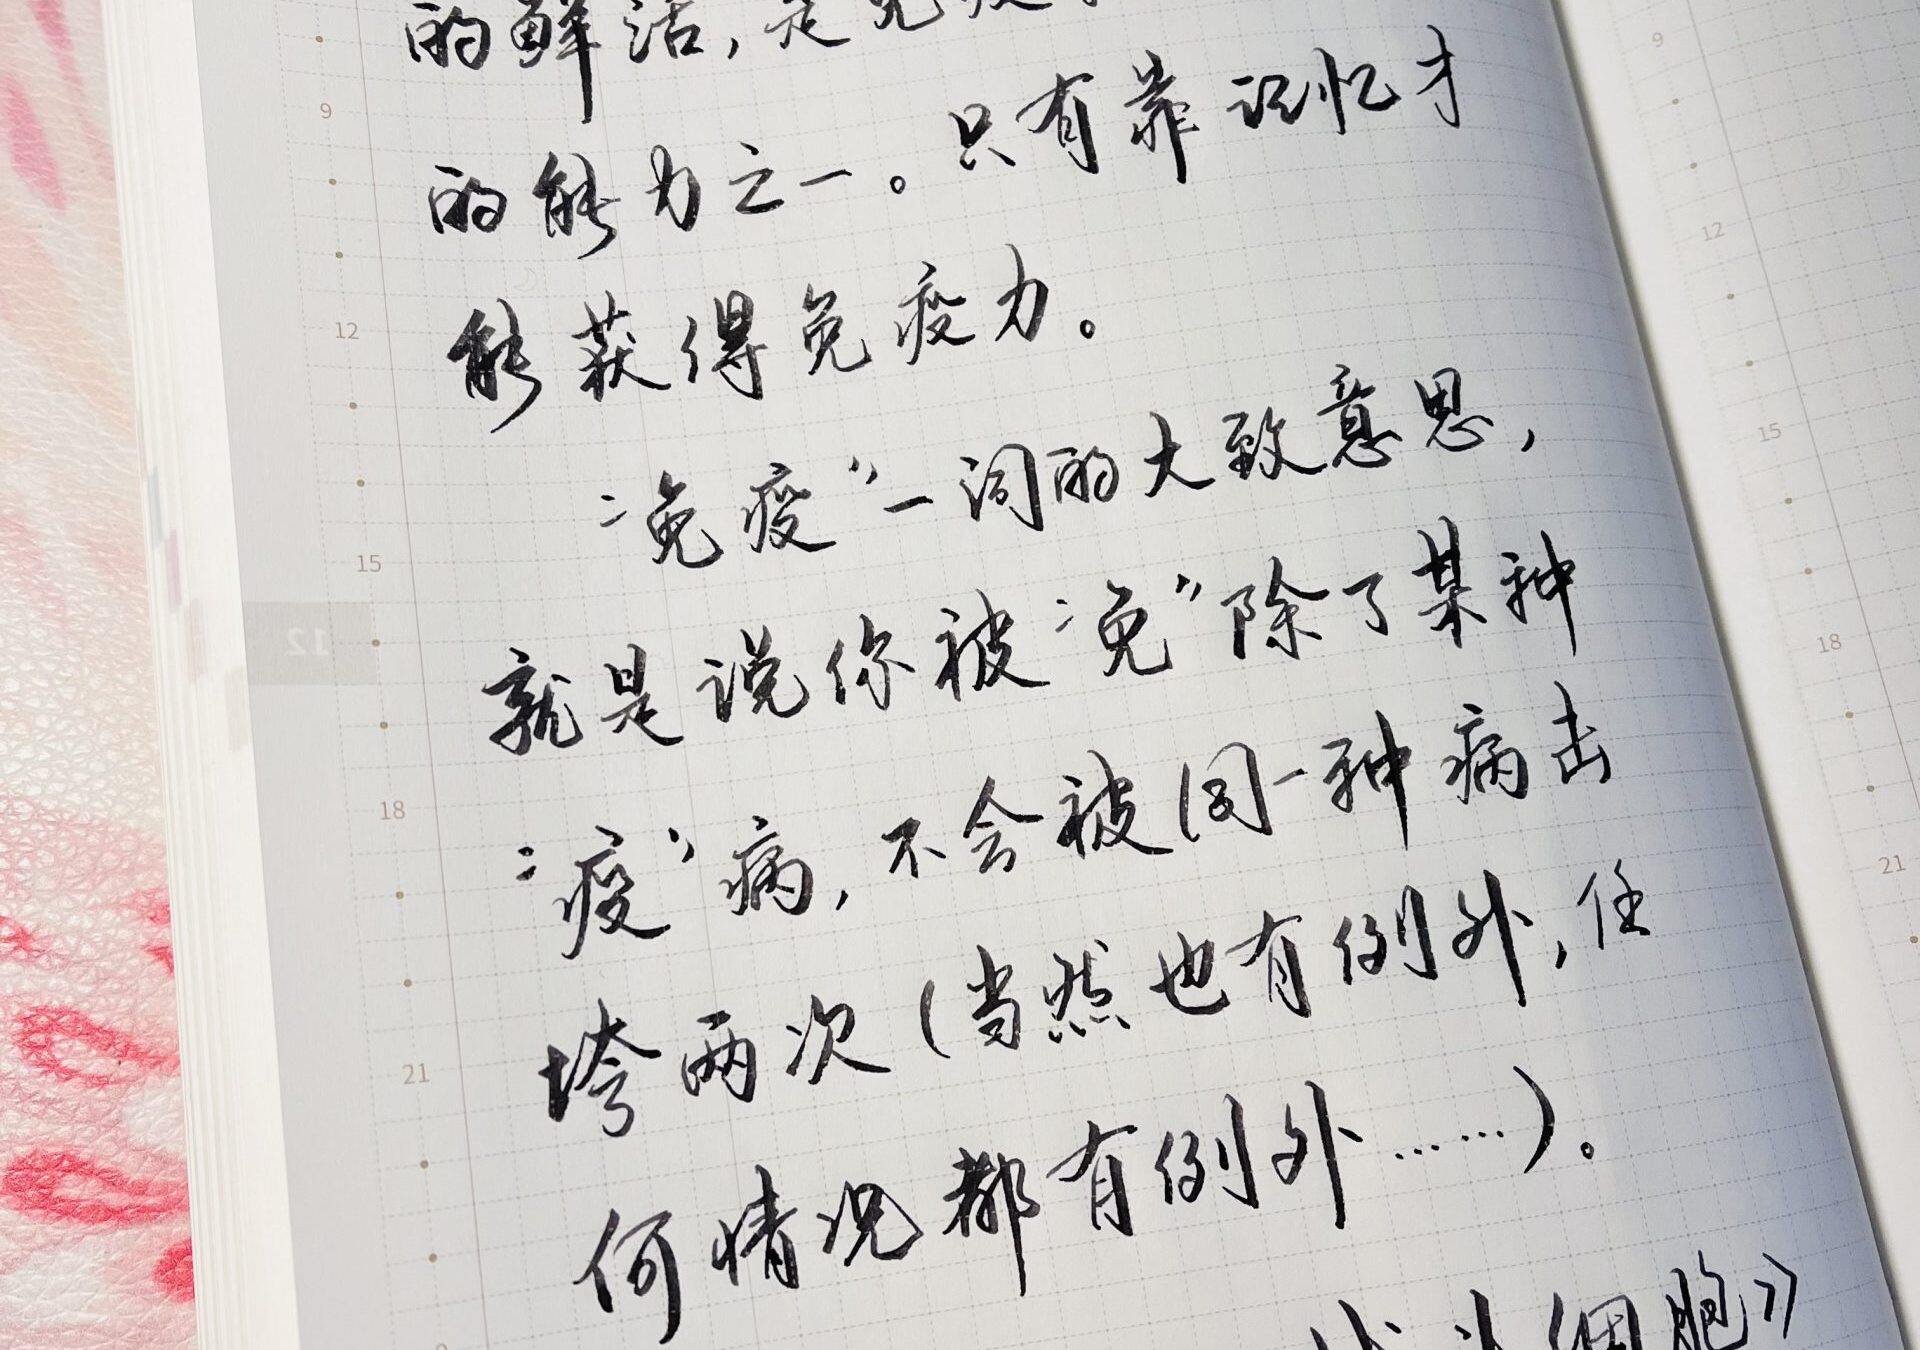 的鲜活，是免疫
的能力之一。只有靠记忆才
能获得免疫力。
“免疫”一词的大致意思，
就是说你被“免”除了某种
“疫”病，不会被同一种病击
垮两次（当然也有例外，任
何情况都有例外……）。
细胞》
9
12
15
18
21
12
9
12
15
18
21